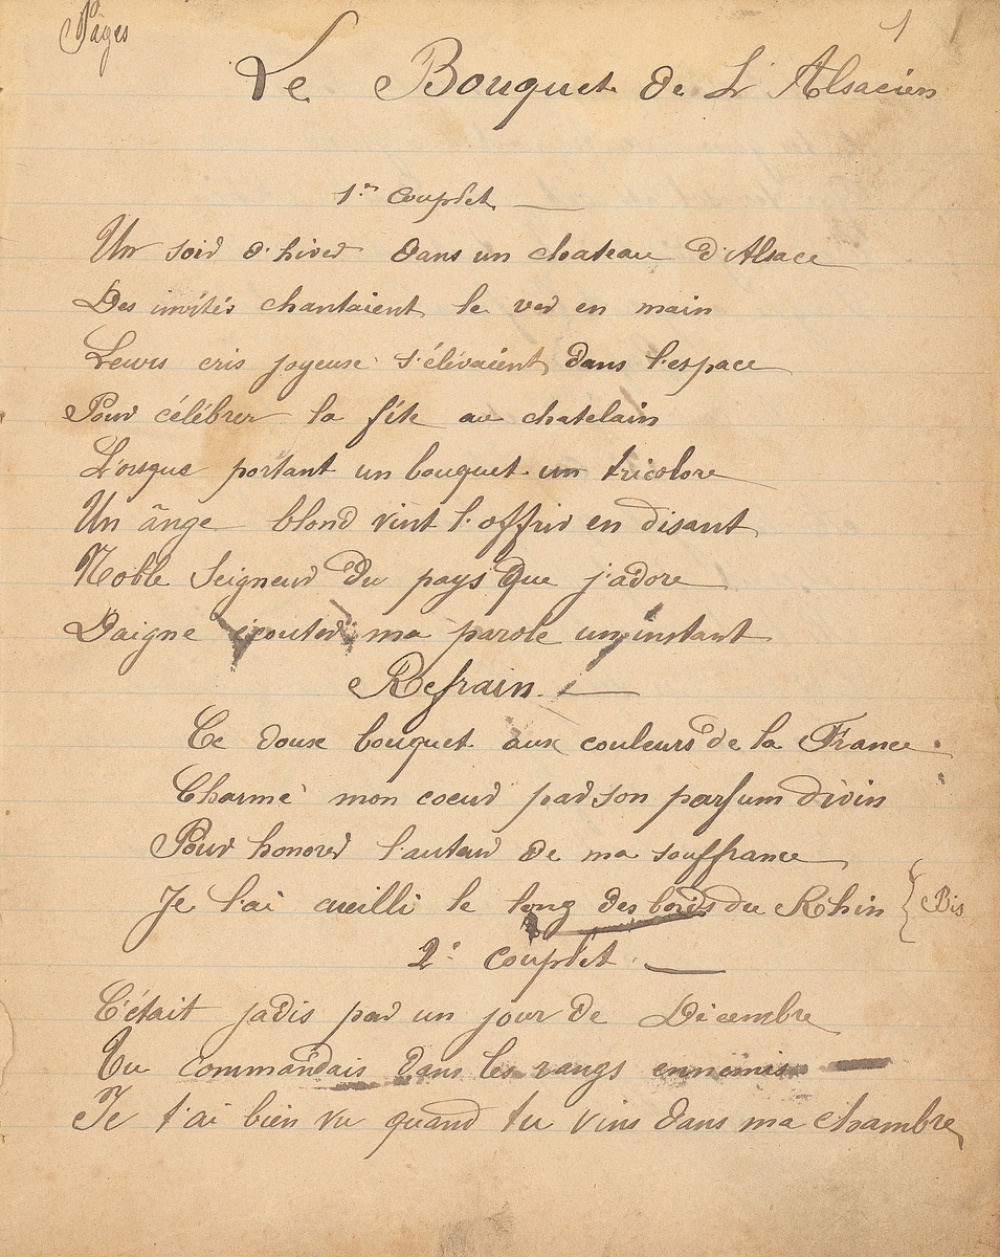 Pages
1
Le Bouquet de L'Alsacien
1er Couplet
Un soir d'hiver dans un chateau d'Alsace
Des invités chantaient le ver en main
Leurs cris joyeuse s'élévaient dans l'espace
Pour célébrer la fête au chatelain
L'orsque portant un bouquet un tricolore
Un ânge blond vint l'offrir en disant
Noble Seigneur du pays que j'adore
Daigne écouter ma parole un instant
Refrain
Ce doux bouquet aux couleurs de la France
Charme mon coeur par son parfum divin
Pour honorer l'auteur de ma souffrance
Je l'ai cueilli le long des bords du Rhin { Bis
2e couplet
C'était jadis par un jour de Décembre
Tu commandais dans les rangs ennemis
Je t'ai bien vu quand tu vins dans ma chambre